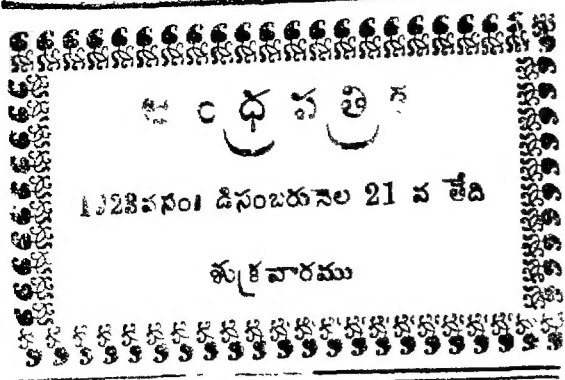 ఆంధ్రపత్రిక
1923వసం॥ డిసంబరునెల 21 వ తేది
శుక్రవారము